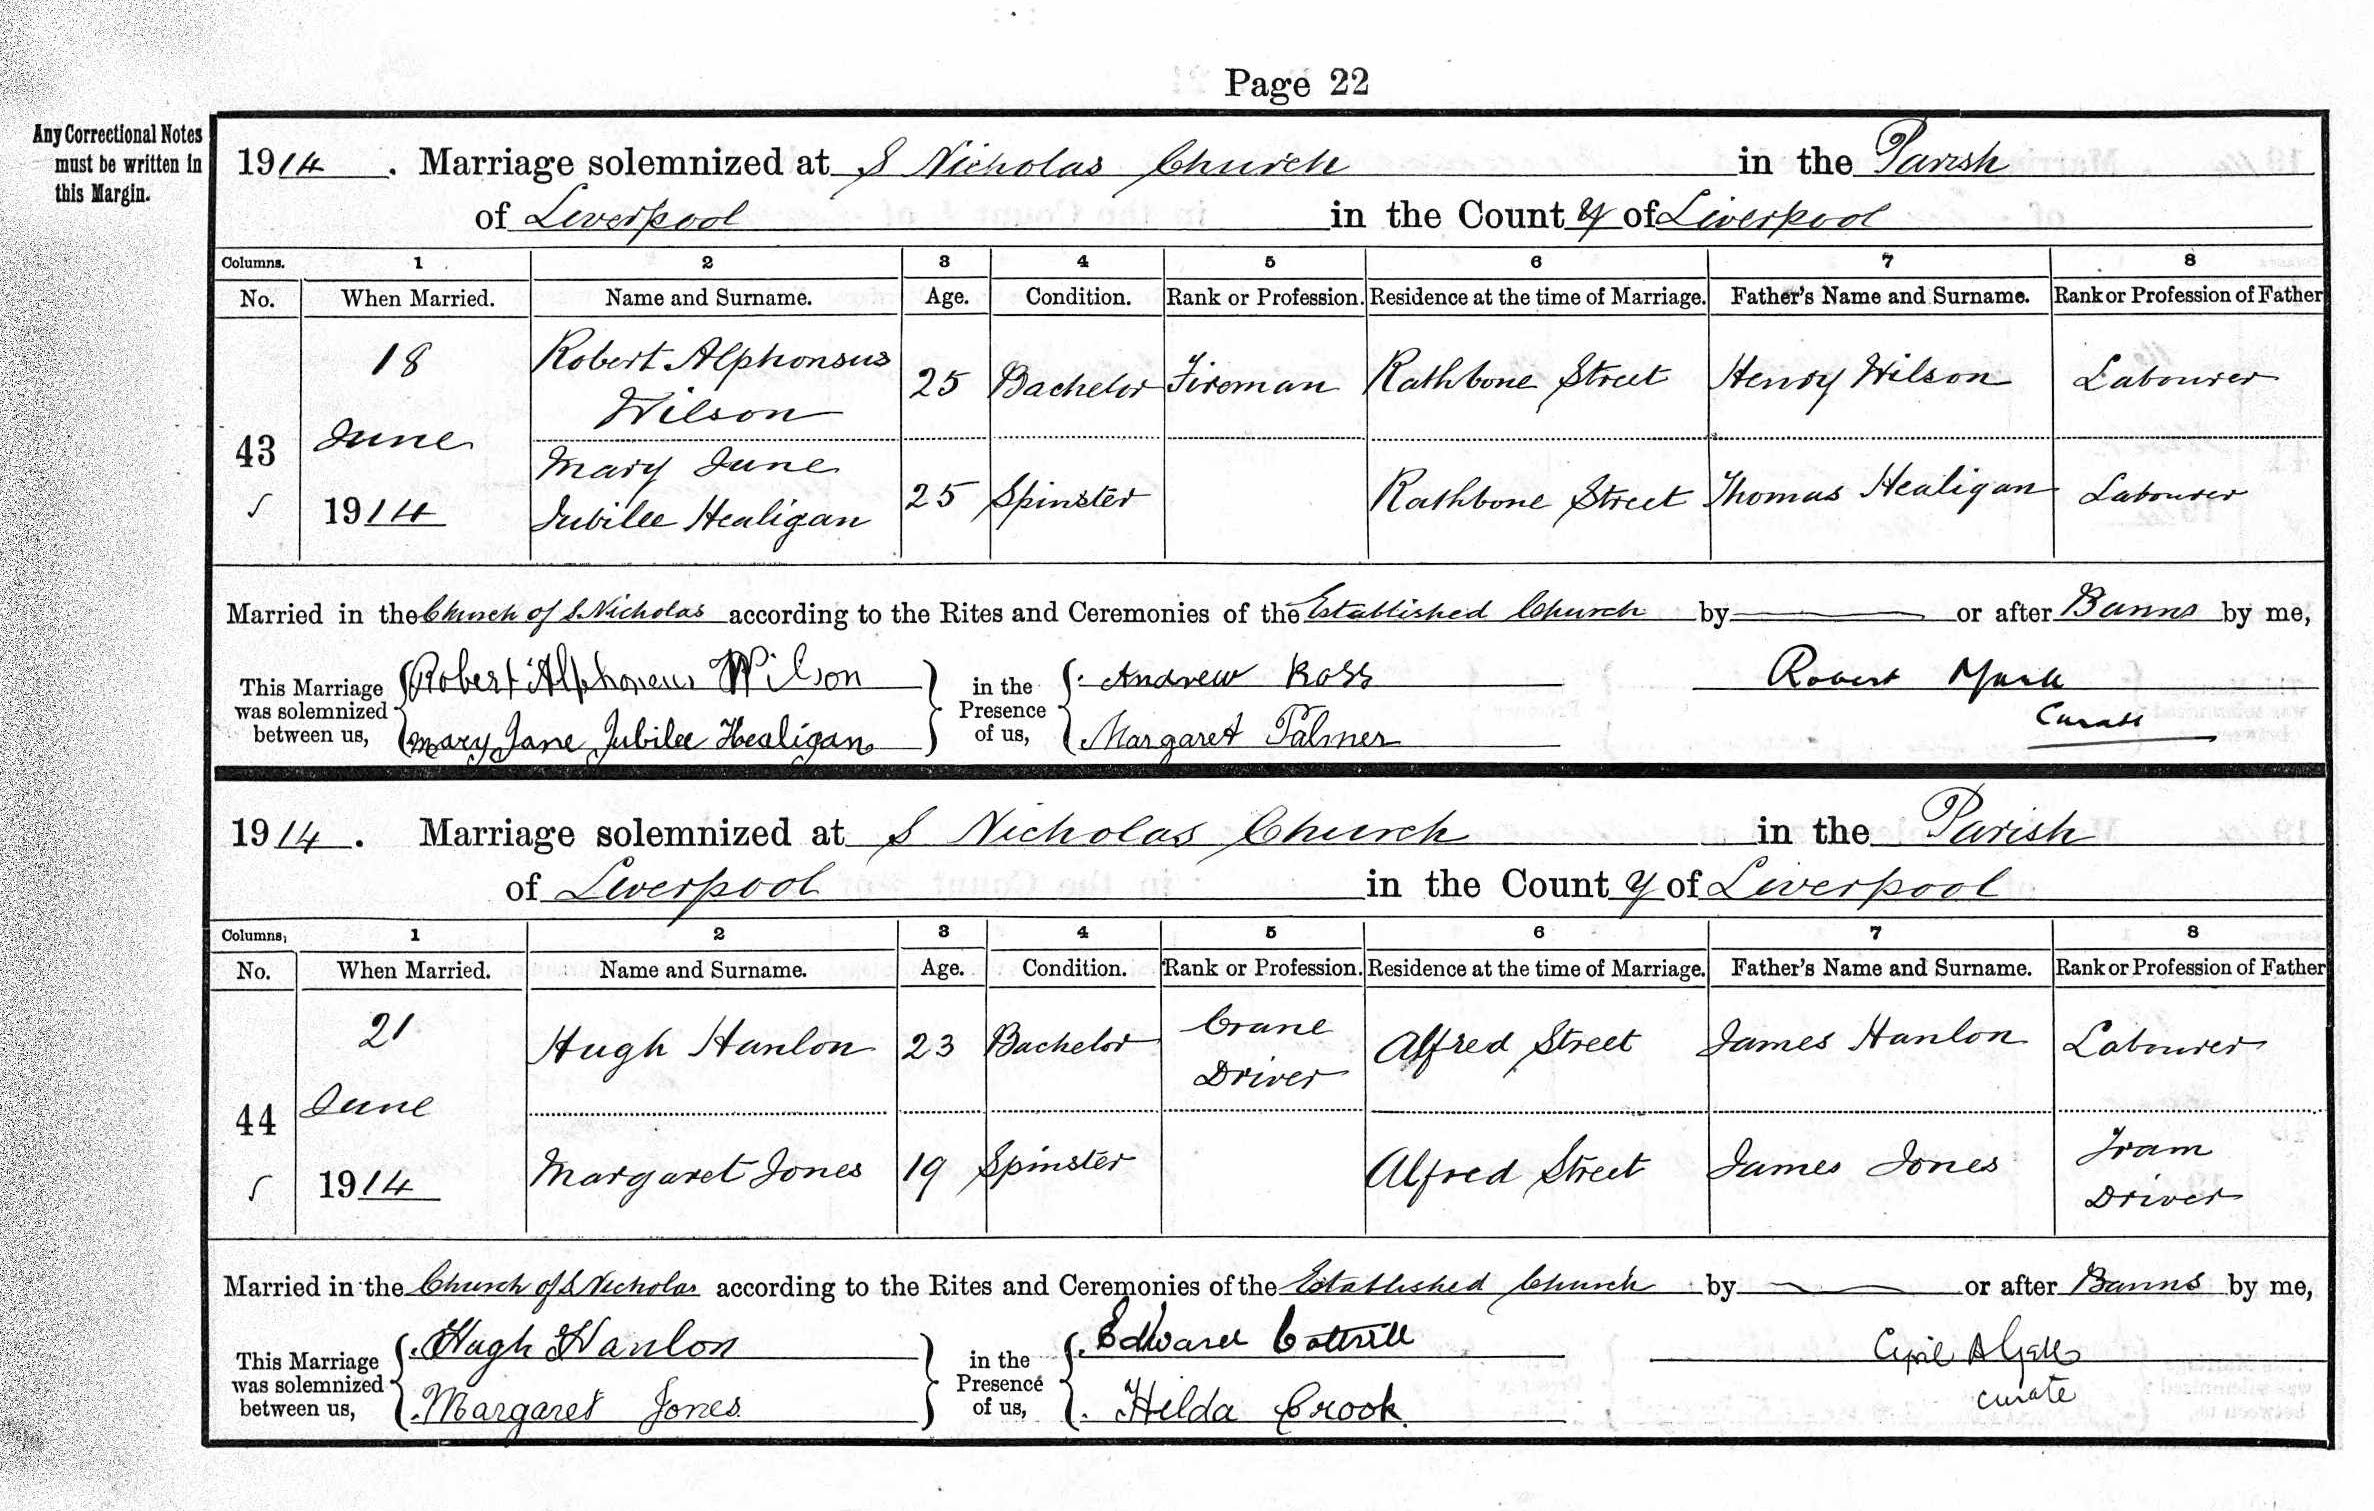 Page 22
Any Correctional Notes
must be written in
this Margin.
1914. Marriage solemnized at S Nicholas Church in the Parish
of Liverpool in the County of Liverpool
Columns. 1 2 3 4 5 6 7 8
No. When Married. Name and Surname. Age. Condition. Rank or Profession. Residence at the time of Marriage. Father's Name and Surname. Rank or Profession of Father
18 Robert Alphonsus
Wilson 25 Bachelor Fireman Rathbone Street Henry Wilson Labourer
43 June
Mary June
1914 Jubilee Healigan 25 Spinster Rathbone Street Thomas Healigan Labourer
Married in the Church of S. Nicholas according to the Rites and Ceremonies of the Established Church by or after Banns by me,
This Marriage
was solemnized
between us,
Robert Alphonsus Wilson
Mary Jane Jubilee Healigan
in the
Presence
of us,
Andrew Ross
Margaret Palmer
Robert
Curate
1914. Marriage solemnized at S Nicholas Church in the Parish
of Liverpool in the County of Liverpool
Columns, 1 2 3 4 5 6 7 8
No. When Married. Name and Surname. Age. Condition. Rank or Profession. Residence at the time of Marriage. Father's Name and Surname. Rank or Profession of Father
21 Hugh Hanlon 23 Bachelor Crane
Driver Alfred Street James Hanlon Labourer
44 June
1914 Margaret Jones 19 Spinster Alfred Street James Jones Tram
Driver
Married in the Church of S Nicholas according to the Rites and Ceremonies of the Established Church by or after Banns by me,
This Marriage
was solemnized
between us,
Hugh Hanlon
Margaret Jones
in the
Presence
of us,
Edward Cottrill
Hilda Crook
Cyril
curate